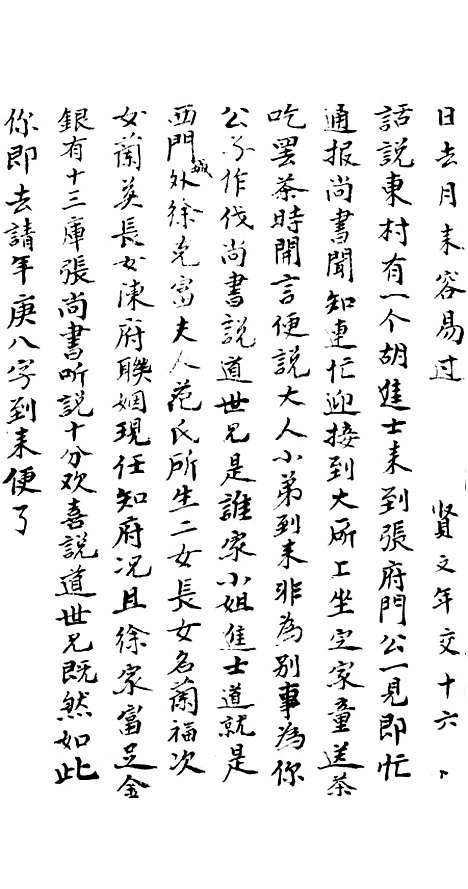 日去月来容易过 賢文年交十六
話説東村有一个胡進士来到張府門公一見即忙
通报尚書聞知連忙迎接到大所上坐定家童送茶
吃罢茶時開言便説大人小弟到来非為别事為你
公子作伐尚書説道世兄是誰家小姐進士道就是
西門城外徐克富夫人范氏所生二女長女名蘭福次
女蘭英長女陳府聮姻現任知府况且徐家富足金
銀有十三庫張尚書听説十分欢喜説道世兄既然如此
你即去請年庚八字到来便了